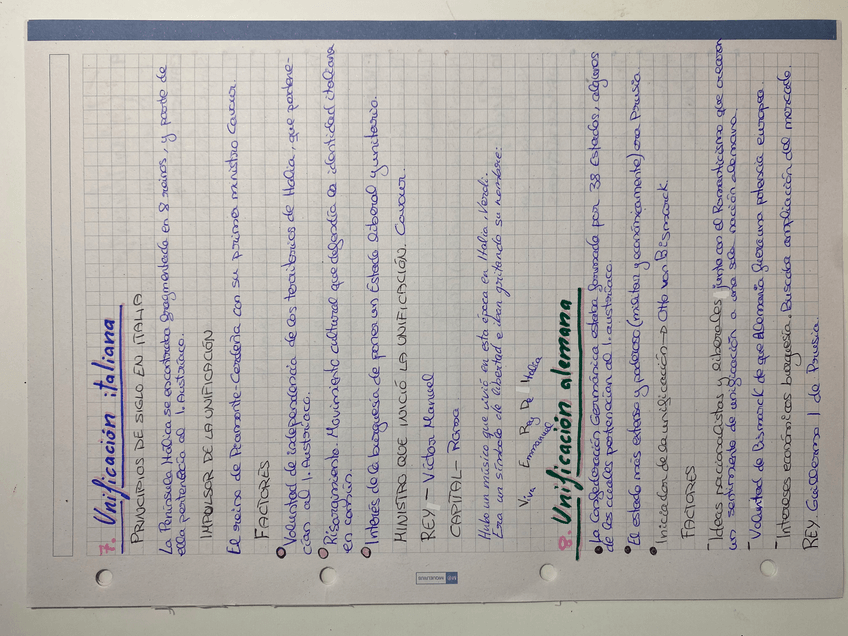 7. Unificación italiana
PRINCIPIOS DE SIGLO EN ITALIA
La Península Itálica se encontraba fragmentada en 8 reinos, y parte de
ella pertenecía al I. Austríaco.
IMPULSOR DE LA UNIFICACIÓN
El reino de Piamonte-Cerdeña con su primer ministro Cavour.
FACTORES
Voluntad de independencia de los territorios de Italia, que pertene-
cían al I. Austríaco.
Risorgimento. Movimiento cultural que defendía la identidad italiana
en común.
Interés de la burguesía de poner un Estado liberal y unitario.
MINISTRO QUE INICIÓ LA UNIFICACIÓN. Cavour.
REY - Víctor Manuel
CAPITAL - Roma
Hubo un músico que vivió en esta época en Italia, Verdi.
Era un símbolo de libertad e iban gritando su nombre:
Viva Emmanuel Rey De Italia
8. Unificación alemana
La Confederación Germánica estaba formada por 38 Estados, algunos
de los cuales pertenecían al I. austríaco.
El estado más extenso y poderoso (militar y económicamente) era Prusia.
Iniciador de la unificación → Otto von Bismarck.
FACTORES
- Ideas nacionalistas y liberales junto con el Romanticismo que crearon
un sentimiento de unificación a una sola nación alemana.
- Voluntad de Bismarck de que Alemania fuera una potencia europea.
- Intereses económicos burguesía. Buscaba ampliación del mercado.
REY. Guillermo I de Prusia.